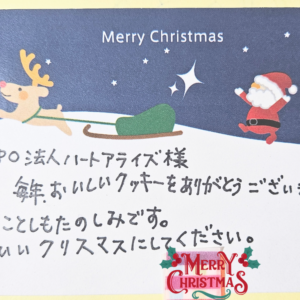 Merry Christmas
PO法人ハートアライズ様
毎年、おいしいクッキーをありがとうござい
ことしもたのしみです。
いい クリスマスにしてください。
MERRY
CHRISTMAS